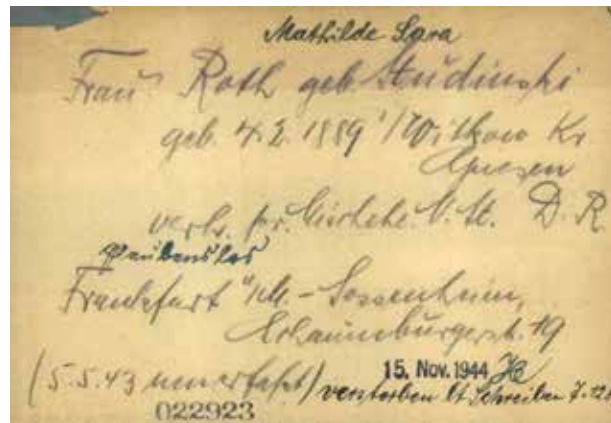 Mathilde Sara
Frau Roth geb. Studinski
geb. 4.2. 1889 Witkow Kr
Gnesen
verh. pr. Mischehe. St. D. R.
Glaubenslos
Frankfurt a/M. - Sossenheim,
str. 19
(5.5.43 neu erfaßt)
15. Nov. 1944
verstorben lt. Schreiben
022923